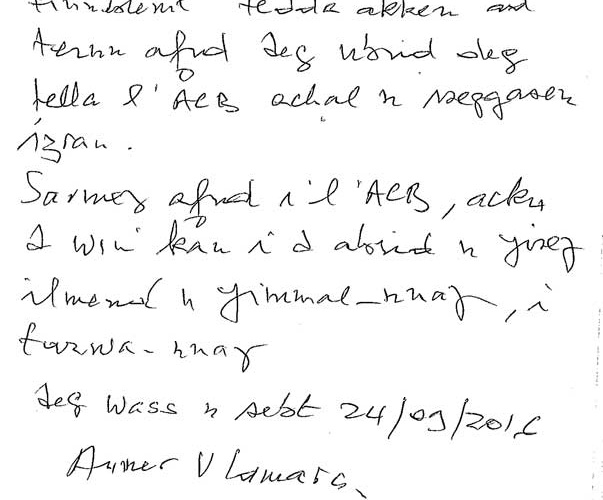 tedda akken ad
ternu afud deg ubrid deg
tella l'ACB achal n iseggasen
izran.
Sarmeɣ afud i l'ACB, acku
d win kan i d abrid n yiseɣ
ilmend n yimmal-nnaɣ, i
tarwa-nnaɣ
deg wass n sebt 24/09/2016